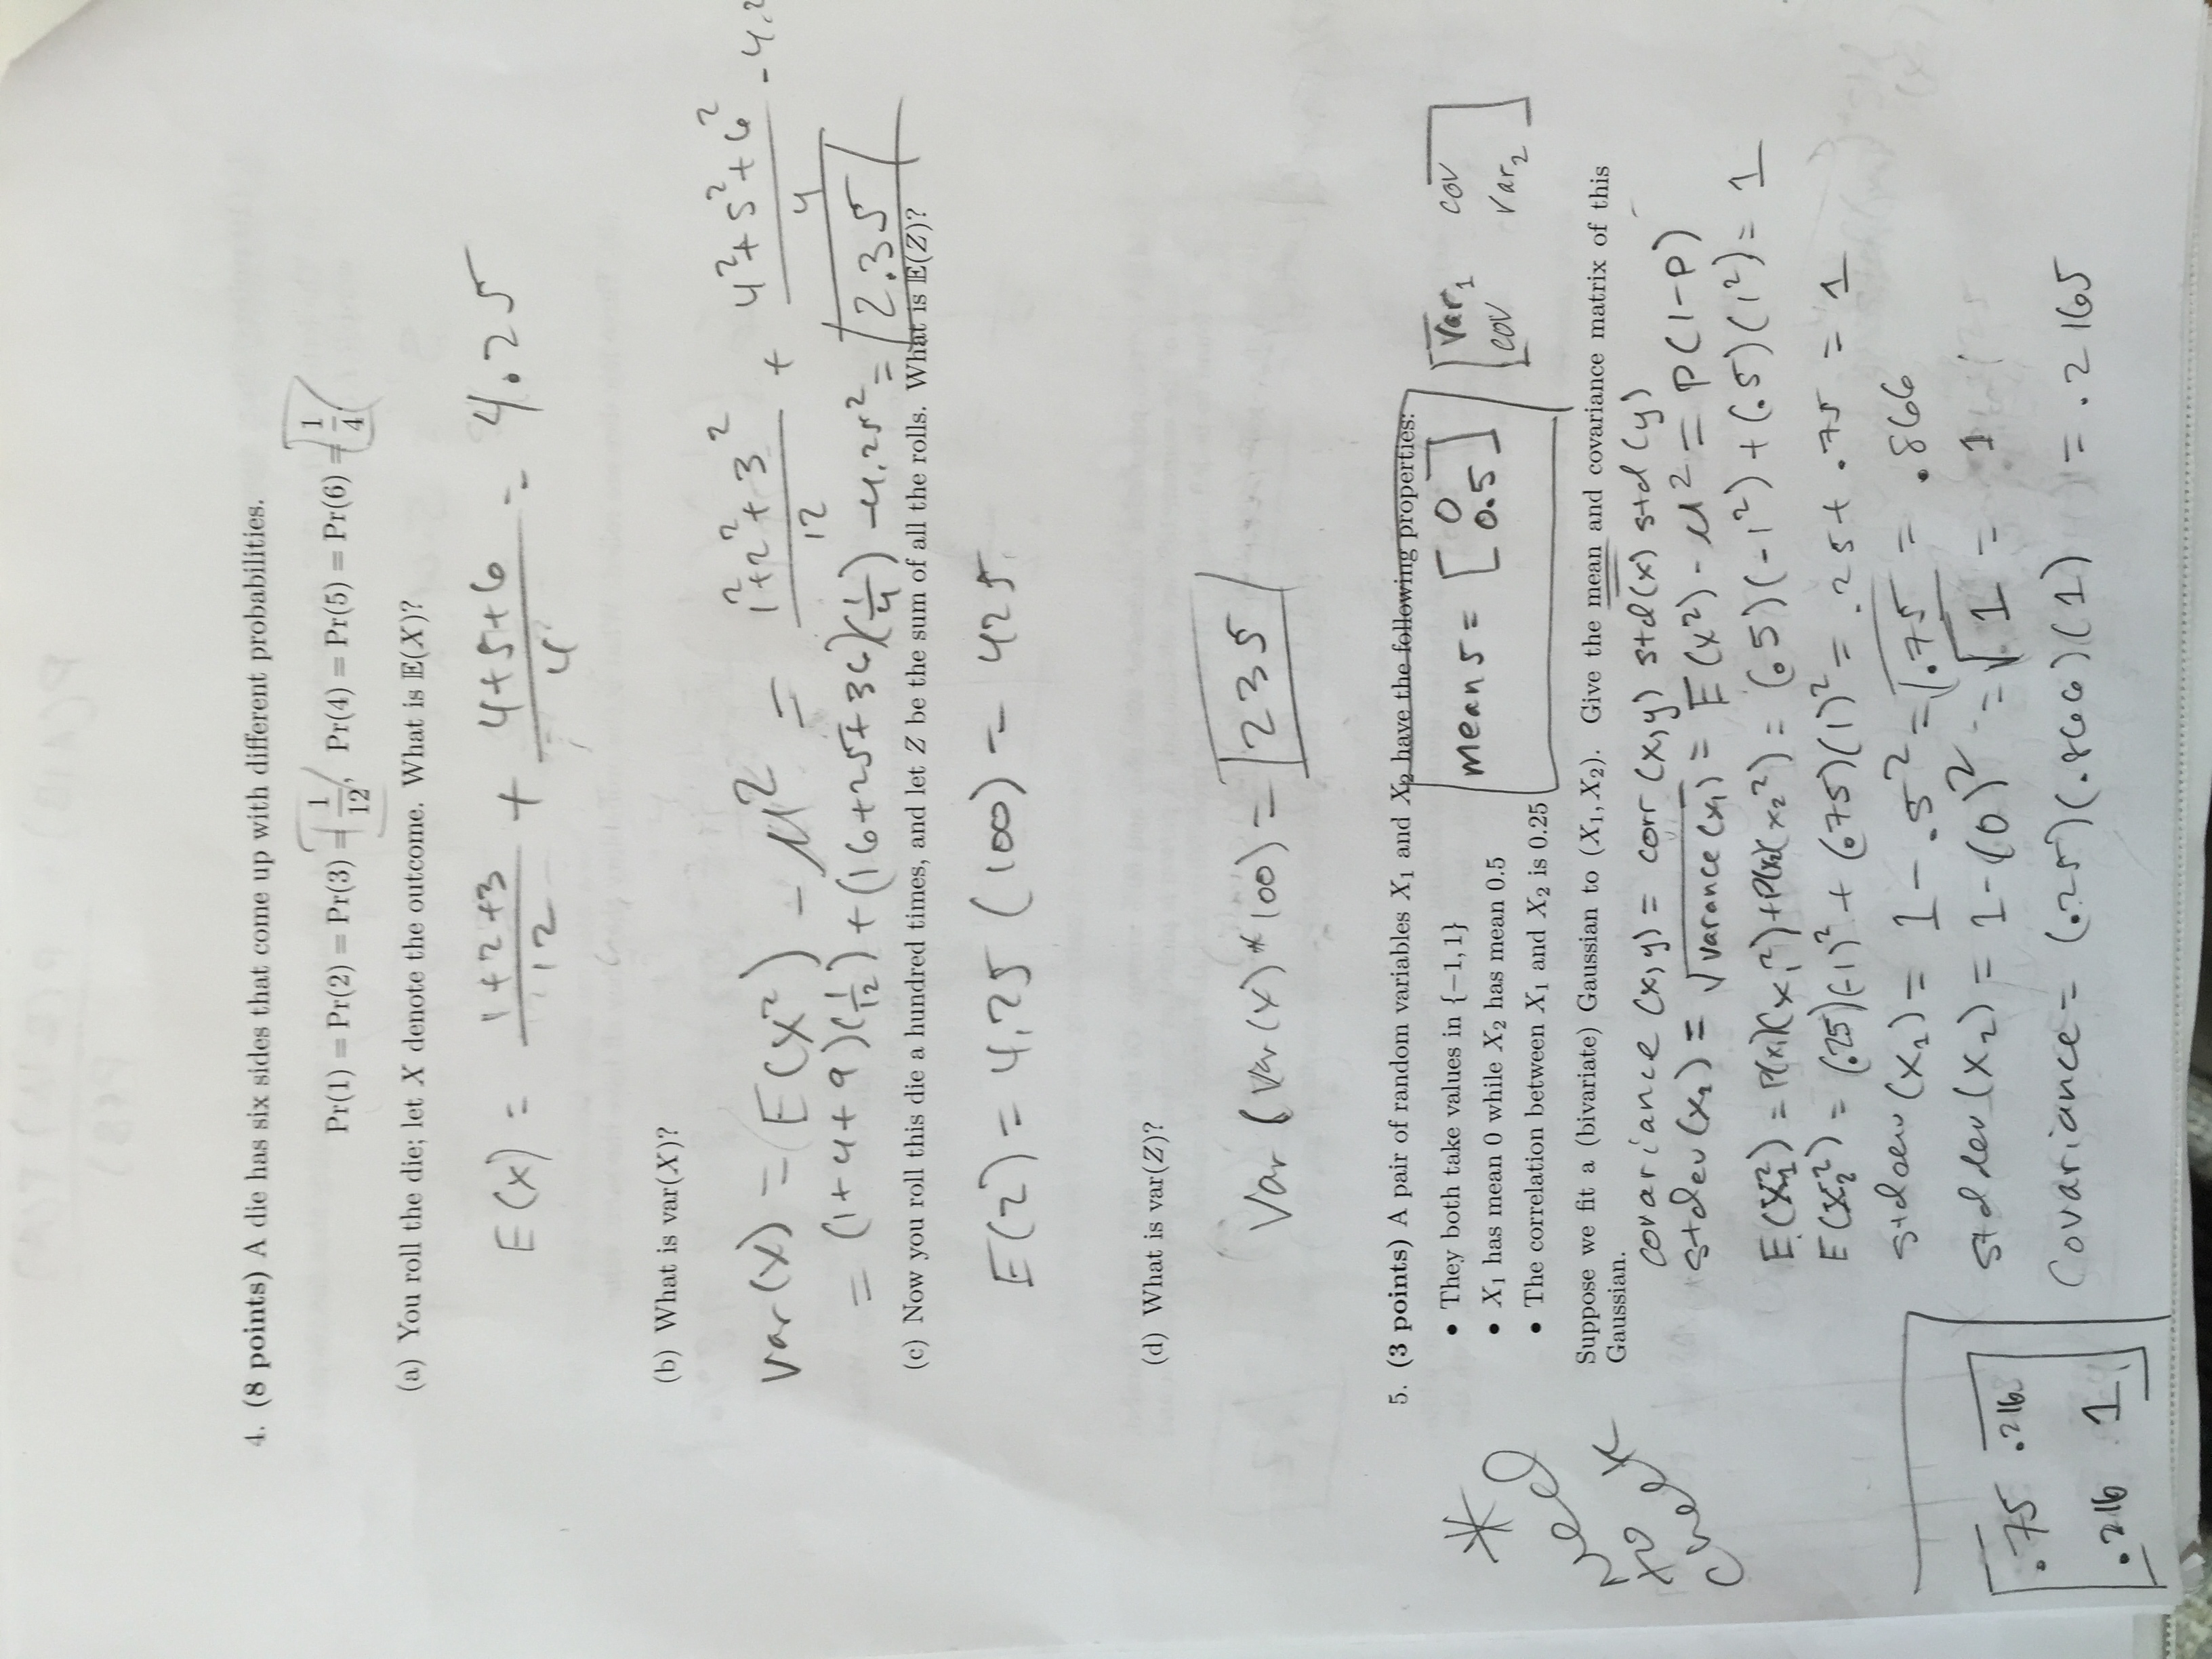 4. (8 points) A die has six sides that come up with different probabilities.
Pr(1) = Pr(2) = Pr(3) = 1/12, Pr(4) = Pr(5) = Pr(6) = 1/4
(a) You roll the die; let X denote the outcome. What is 𝔼(X)?
E(x) = (1+2+3)/12 + (4+5+6)/4 = 4.25
(b) What is var(X)?
Var(X) = E(X²) - μ² = (1²+2²+3²)/12 + (4²+5²+6²)/4 - 4.2
= (1+4+9)(1/12) + (16+25+36)(1/4) - 4.25² = 2.35
(c) Now you roll this die a hundred times, and let Z be the sum of all the rolls. What is 𝔼(Z)?
E(Z) = 4.25 (100) = 425
(d) What is var(Z)?
Var (Var(X) * 100) = 235
5. (3 points) A pair of random variables X₁ and X₂ have the following properties:
• They both take values in {−1, 1}
• X₁ has mean 0 while X₂ has mean 0.5
• The correlation between X₁ and X₂ is 0.25
means = [0
0.5]
[Var₁ cov
cov var₂]
Suppose we fit a (bivariate) Gaussian to (X₁, X₂). Give the mean and covariance matrix of this
Gaussian.
* need
to
check
covariance (x,y) = corr (x,y) std(x) std(y)
stdev(x₁) = √varance(x₁) = E(x²) - μ² = P(1-P)
E(X₁²) = P(x₁)(x₁²) + P(x₂)(x₂²) = (.5)(-1²) + (.5)(1²) = 1
E(X₂²) = (.25)(-1)² + (.75)(1)² = .25 + .75 = 1
stddev (x₁) = 1 - .5² = √.75 = .866
std dev (x₂) = 1-(0)² = √1 = 1
Covariance = (.25)(.866)(1) = .2165
[.75 .216
.216 1]